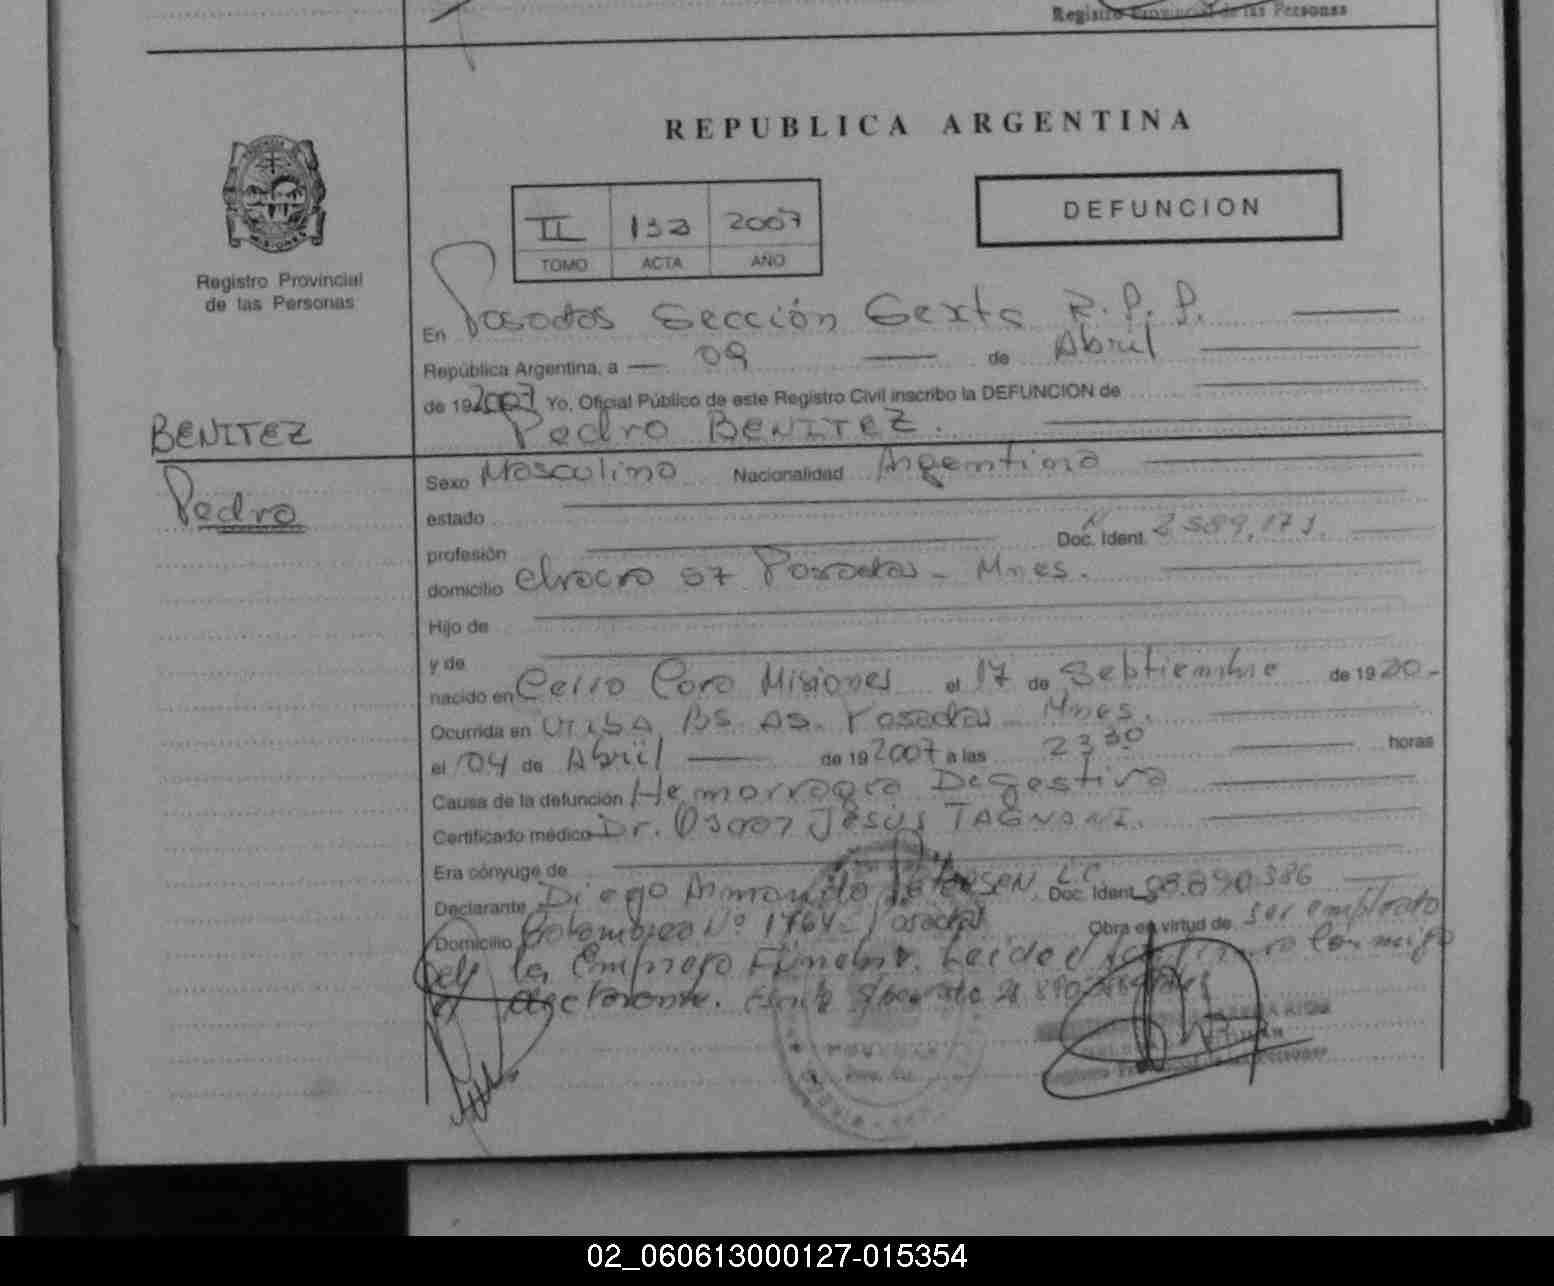 Registro Provincial de las Personas
REPUBLICA ARGENTINA
II 132 2007
TOMO ACTA AÑO
DEFUNCION
Registro Provincial
de las Personas
En Posadas Sección Sexta R.P.P.
República Argentina, a 09 de Abril
de 192007 Yo, Oficial Público de este Registro Civil inscribo la DEFUNCION de
Pedro BENITEZ.
BENITEZ
Pedro
Sexo Masculino Nacionalidad Argentina
estado
profesión Doc. Ident.
domicilio chacra 57 Posadas - Mnes.
Hijo de
y de
nacido en Cerro Cora Misiones el 17 de Septiembre de 1920-
Ocurrida en Bs. As. Posadas Mnes.
el 04 de Abril de 192007 a las 23 30 horas
Causa de la defunción Hemorragia Degestiva
Certificado médico Dr. Jesus
Era cónyuge de
Declarante Diego Armando Doc. Ident.
Domicilio Nº 1764 - Posadas Obra en virtud de ser empleado
de la Empresa Funebre. Leida el acta firma conmigo
el declarante.
02_060613000127-015354